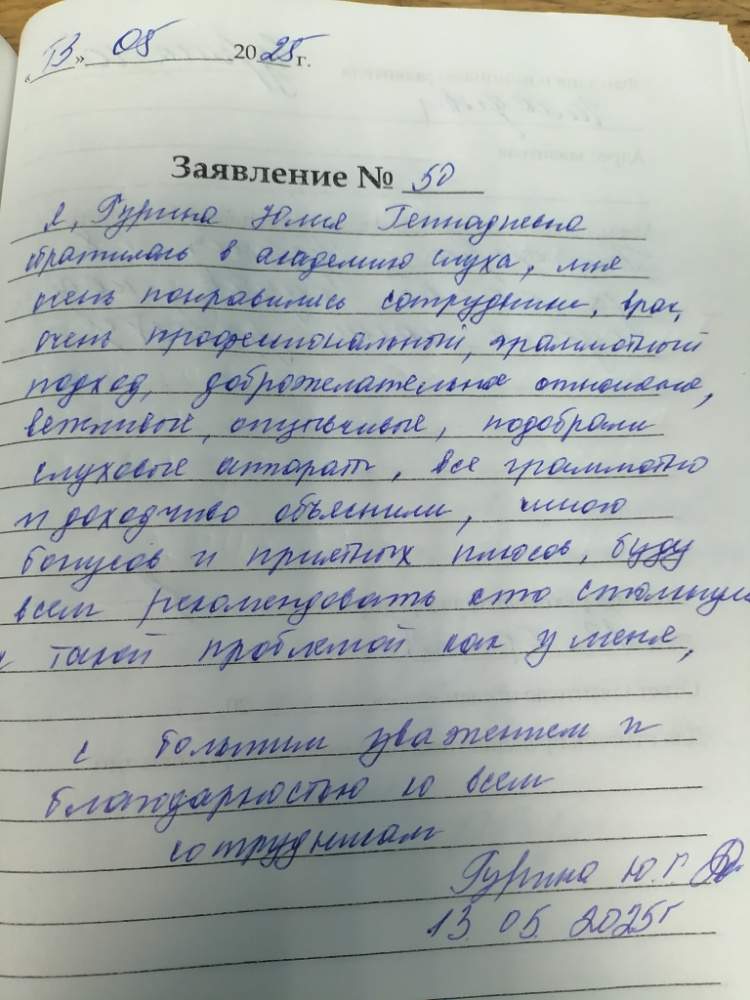 «13» 05 2025 г.
Заявление № 50
Я, Гурина Юлия Геннадьевна
обратилась в академию слуха, мне
очень понравились сотрудники, врач,
очень профессиональный, грамотный
подход, доброжелательное отношение,
вежливые, отзывчивые, подобрали
слуховые аппараты, все грамотно
и доходчиво объяснили, много
бонусов и приятных плюсов, буду
всем рекомендовать кто столкнулся
с такой проблемой как у меня,
с большим уважением и
благодарностью ко всем
сотрудникам
Гурина Ю.Г.
13.05.2025г